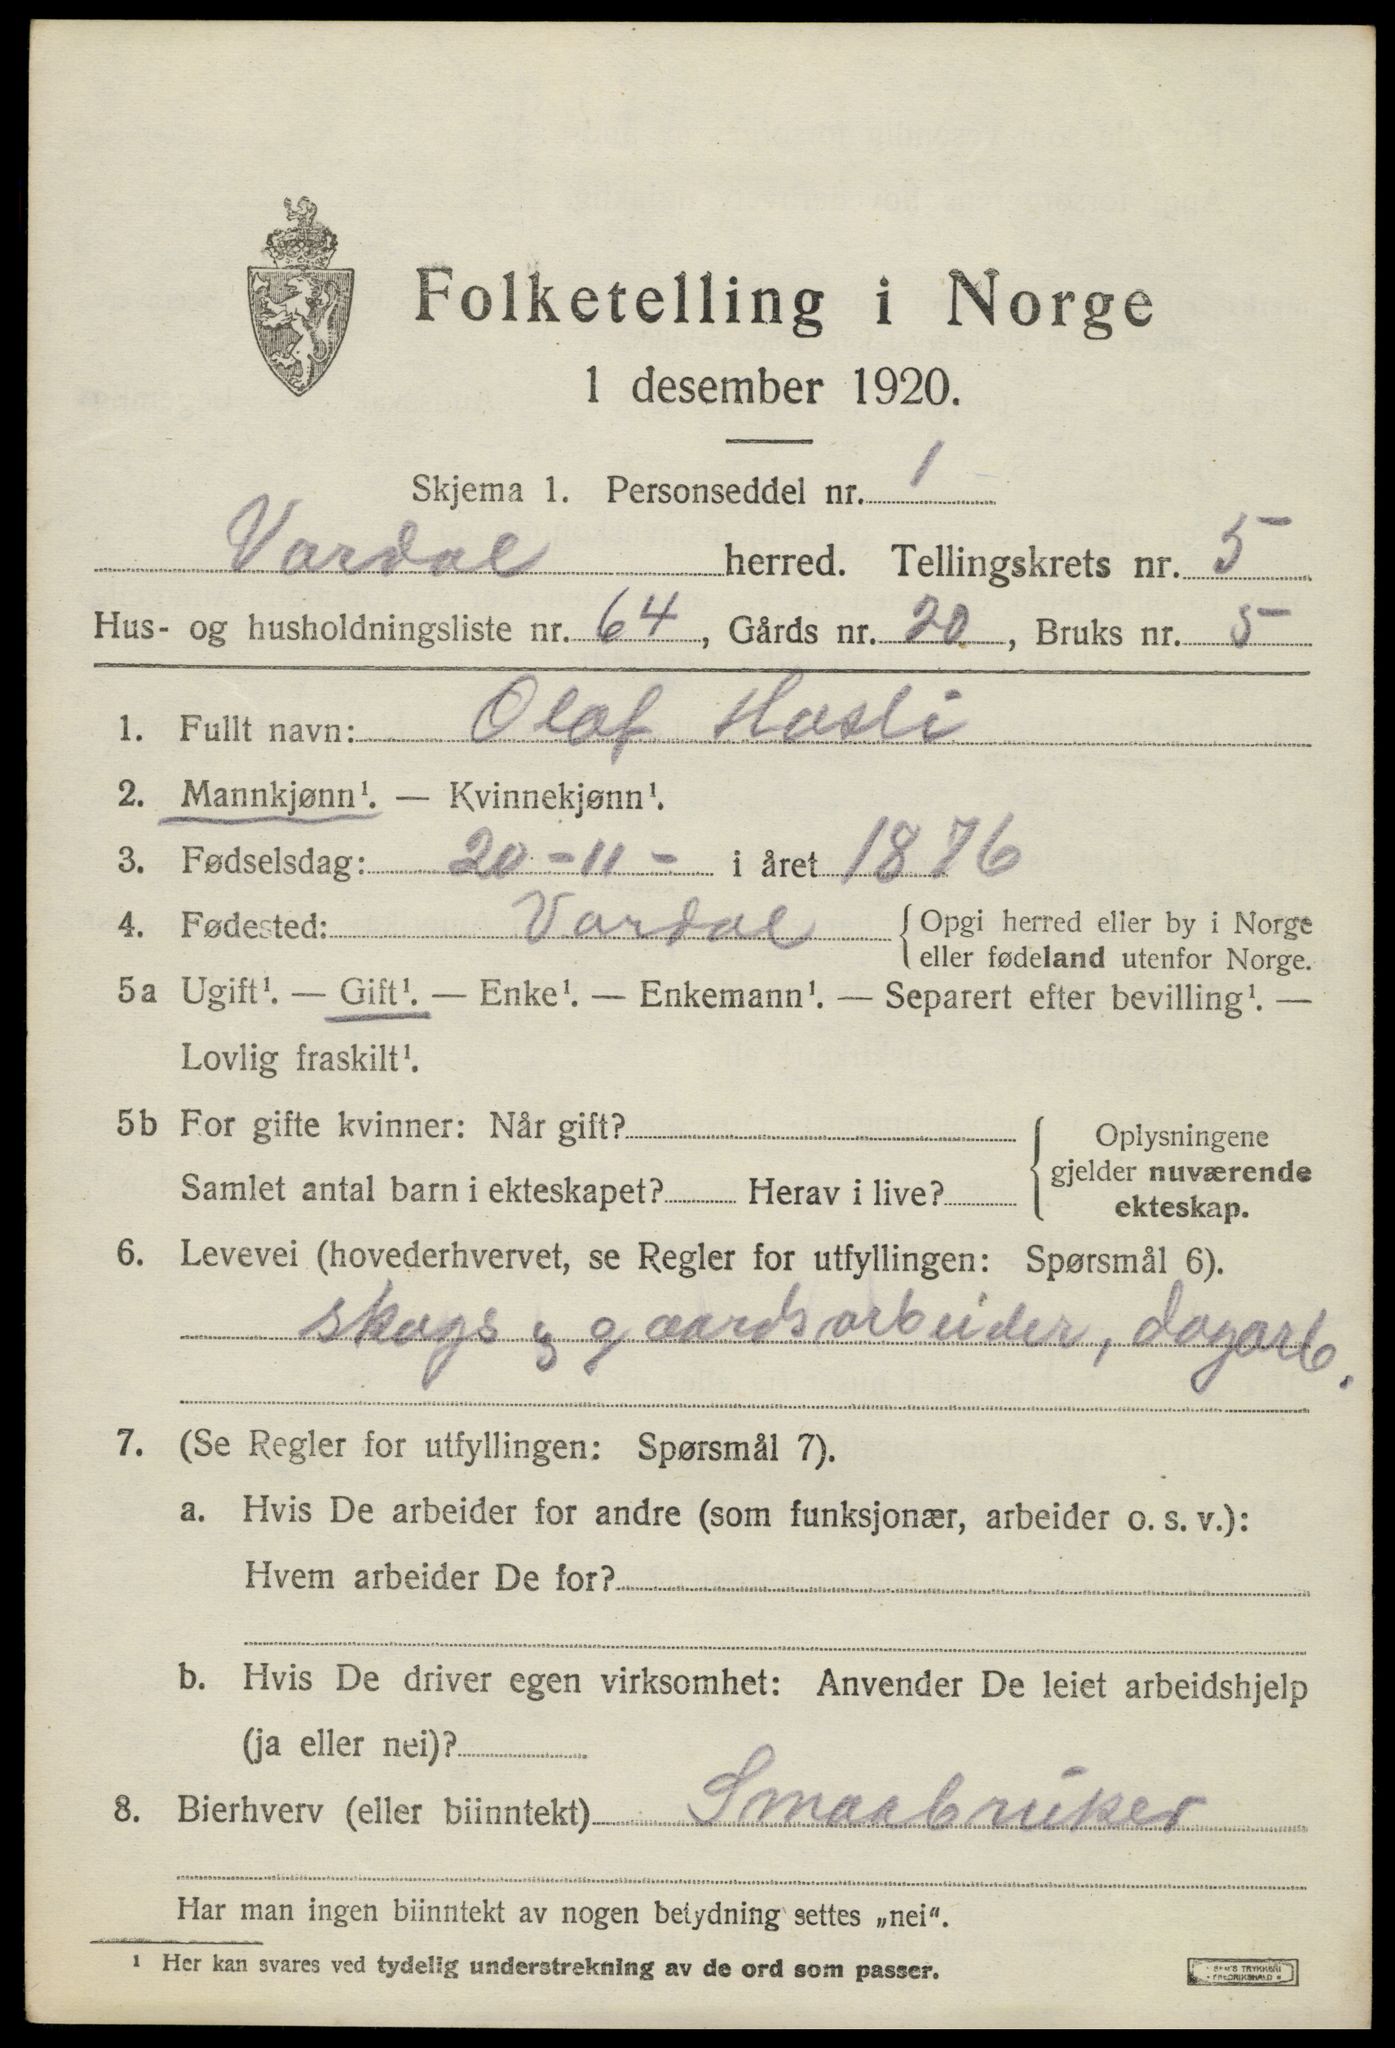 Folketelling i Norge
1 desember 1920.
Skjema 1. Personseddel nr. 1
Vardal herred. Tellingskrets nr. 5
Hus- og husholdningsliste nr. 64, Gårds nr. 20, Bruks nr. 5
1. Fullt navn: Olaf Hasli
2. Mannkjønn¹. — Kvinnekjønn¹.
3. Fødselsdag: 20 - 11 - i året 1876
4. Fødested: Vardal {Opgi herred eller by i Norge
eller fødeland utenfor Norge.
5a Ugift¹. — Gift¹. — Enke¹. — Enkemann¹. — Separert efter bevilling¹. —
Lovlig fraskilt¹.
5b For gifte kvinner: Når gift?
Samlet antal barn i ekteskapet? Herav i live?
Oplysningene
gjelder nuværende
ekteskap.
6. Levevei (hovederhvervet, se Regler for utfyllingen: Spørsmål 6).
skogs og gaardsarbeider, dagarb.
7. (Se Regler for utfyllingen: Spørsmål 7).
a. Hvis De arbeider for andre (som funksjonær, arbeider o. s. v.):
Hvem arbeider De for?
b. Hvis De driver egen virksomhet: Anvender De leiet arbeidshjelp
(ja eller nei)?
8. Bierhverv (eller biinntekt) Smaabruker
Har man ingen biinntekt av nogen betydning settes „nei“.
¹ Her kan svares ved tydelig understrekning av de ord som passer.
TRYKKERI
FREDRIKSHALD